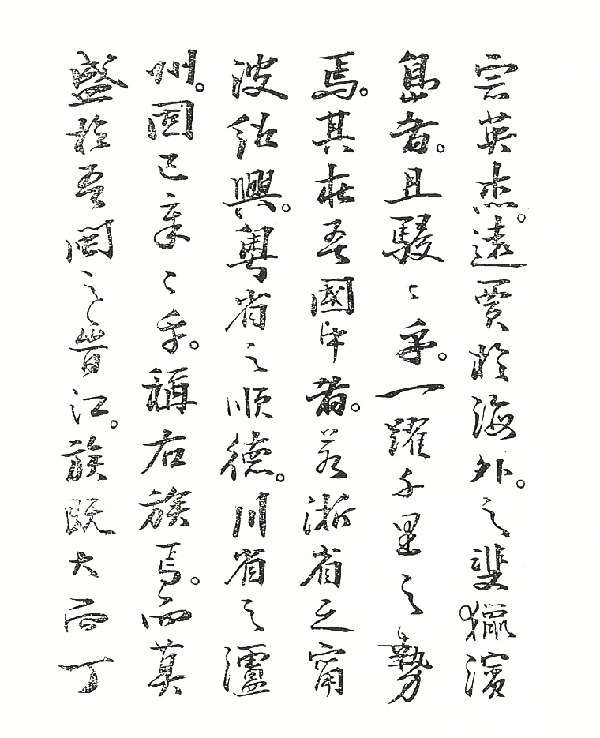 宗英杰。遠賈於海外。之斐獵濱
島者。且駸々乎。一躍千里之勢
焉。其在吾國中者。若浙省之甯
波紹興。粵省之順德。川省之瀘
州。固已章々乎。稱右族焉。而莫
盛於吾閩之晉江。族既大而丁